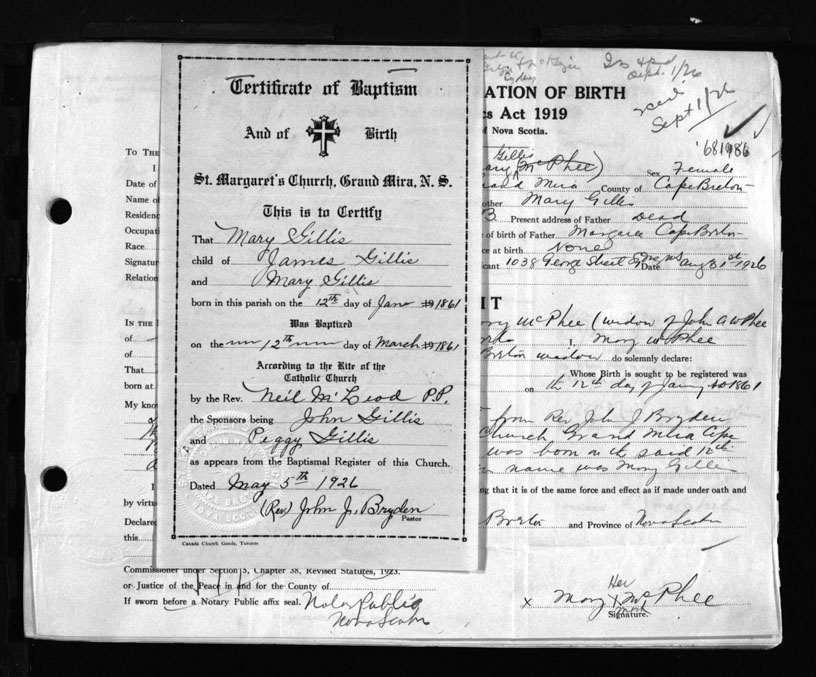 Certificate of Baptism
And of Birth
St. Margaret's Church, Grand Mira, N. S.
This is to Certify
That Mary Gillis
child of James Gillis
and Mary Gillis
born in this parish on the 12th day of Jany 1861
Was Baptized
on the 12th day of March 1861
According to the Rite of the
Catholic Church
by the Rev. Neil McLeod P.P.
the Sponsors being John Gillis
and Peggy Gillis
as appears from the Baptismal Register of this Church.
Dated May 5th 1926
(Rev) John J. Bryden
Pastor
Canada Church Goods, Toronto
To The
I
Date of
Name o
Residenc
Occupat
Race
Signatur
Relation
In the
of
of
That
born at
My kno
I
by virtu
Declared
this
Commissioner under Section 5, Chapter 38, Revised Statutes, 1923.
or Justice of the Peace in and for the County of
If sworn before a Notary Public affix seal. Notary Public
Nova Scotia
Sept. 1/26
ATION OF BIRTH
s Act 1919
of Nova Scotia.
Recd
Sept 1/26
681986
Gillis
ary (McPhee) Sex Female
rand Mira County of Cape Breton
other Mary Gillis
B Present address of Father Dead
of birth of Father Margaree Cape Breton
ce at birth None
cant 1038 George Street Date Aug 31st 1926
IT
ary McPhee (widow of John A McPhee
I, Mary McPhee
Breton widow do solemnly declare:
Whose Birth is sought to be registered was
on the 12th day of January 1861
from Rev John J Bryden
Church Grand Mira Cape
was born on the said 12th
name was Mary Gillis
ng that it is of the same force and effect as if made under oath and
Breton and Province of Nova Scotia
Her
x Mary X McPhee
mark
Signature.